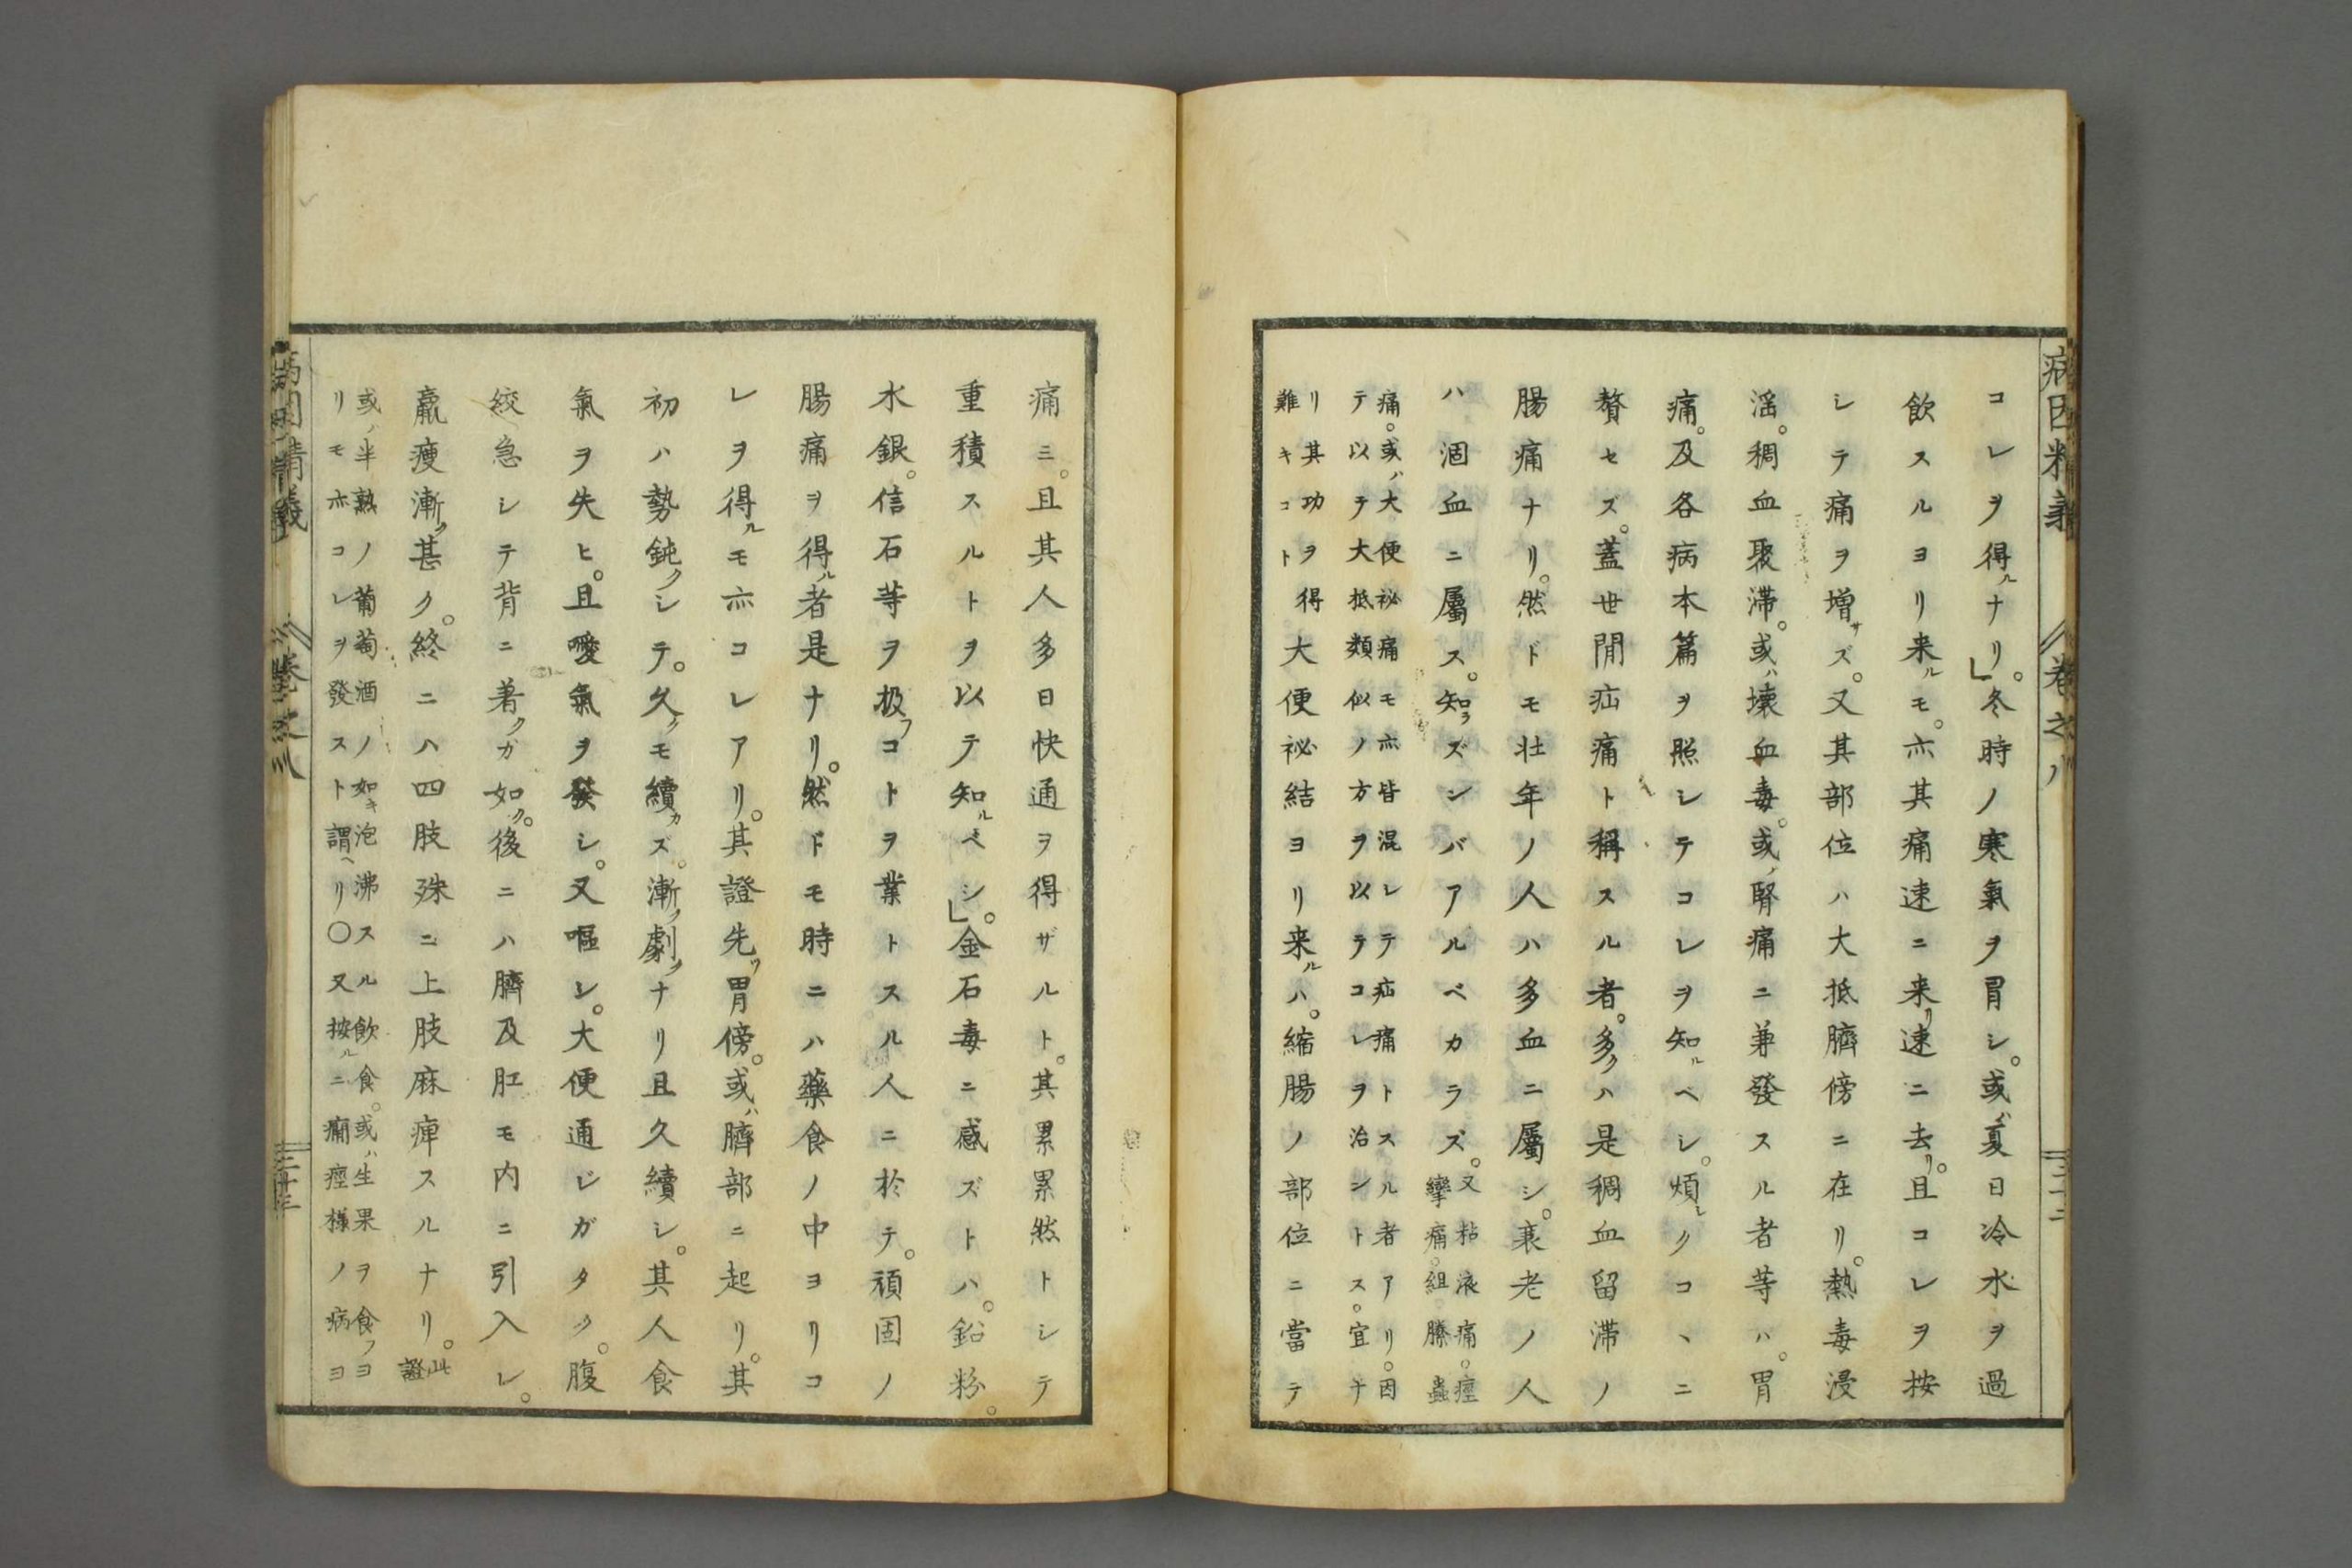 病因精義 卷之八 三十二
コレヲ得ルナリ。」冬時ノ寒氣ヲ冒シ。或ハ夏日冷水ヲ過
飲スルヨリ来ルモ。亦其痛速ニ来リ速ニ去リ。且コレヲ按
シテ痛ヲ増サズ。又其部位ハ大抵臍傍ニ在リ。熱毒浸
淫。稠血聚滞。或ハ壞血毒。或ハ腎痛ニ兼發スル者等ハ。胃
痛。及各病本篇ヲ照シテコレヲ知ルベシ。煩シクコヽニ
贅セズ。蓋世間疝痛ト稱スル者。多クハ是稠血留滞ノ
腸痛ナリ。然ドモ壮年ノ人ハ多血ニ屬シ。衰老ノ人
ハ涸血ニ屬ス。知ラズンバアルベカラズ。又粘液痛。痙
攣痛。組。臁蟲
痛。或ハ大便祕痛モ亦皆混レテ疝痛トスル者アリ。因
テ以テ大抵類似ノ方ヲ以テコレヲ治ントス。宜ナ
リ其功ヲ得
難キコト
大便祕結ヨリ来ルハ。縮腸ノ部位ニ當テ
痛ミ。且其人多日快通ヲ得ザルト。其累累然トシテ
重積スルトヲ以テ知ルベシ。」金石毒ニ感ズトハ。鉛粉。
水銀。信石等ヲ扱フコトヲ業トスル人ニ於テ。頑固ノ
腸痛ヲ得ル者是ナリ。然ドモ時ニハ藥食ノ中ヨリコ
レヲ得ルモ亦コレアリ。其證先ツ胃傍。或ハ臍部ニ起リ。其
初ハ勢鈍クシテ。久クモ續カズ。漸ク劇クナリ且久續シ。其人食
氣ヲ失ヒ。且噯氣ヲ發シ。又嘔シ。大便通ジガタク。腹
絞急シテ背ニ著クガ如ク。後ニハ臍及肛モ内ニ引入レ。
羸瘦漸ク甚ク。終ニハ四肢殊ニ上肢麻痺スルナリ。此
證
或ハ半熟ノ葡萄酒ノ如キ泡沸スル飲食。或ハ生果ヲ食フヨ
リモ亦コレヲ發スト謂ヘリ○又按ルニ癇痙様ノ病ヨ
病因精義 卷之八 三十三